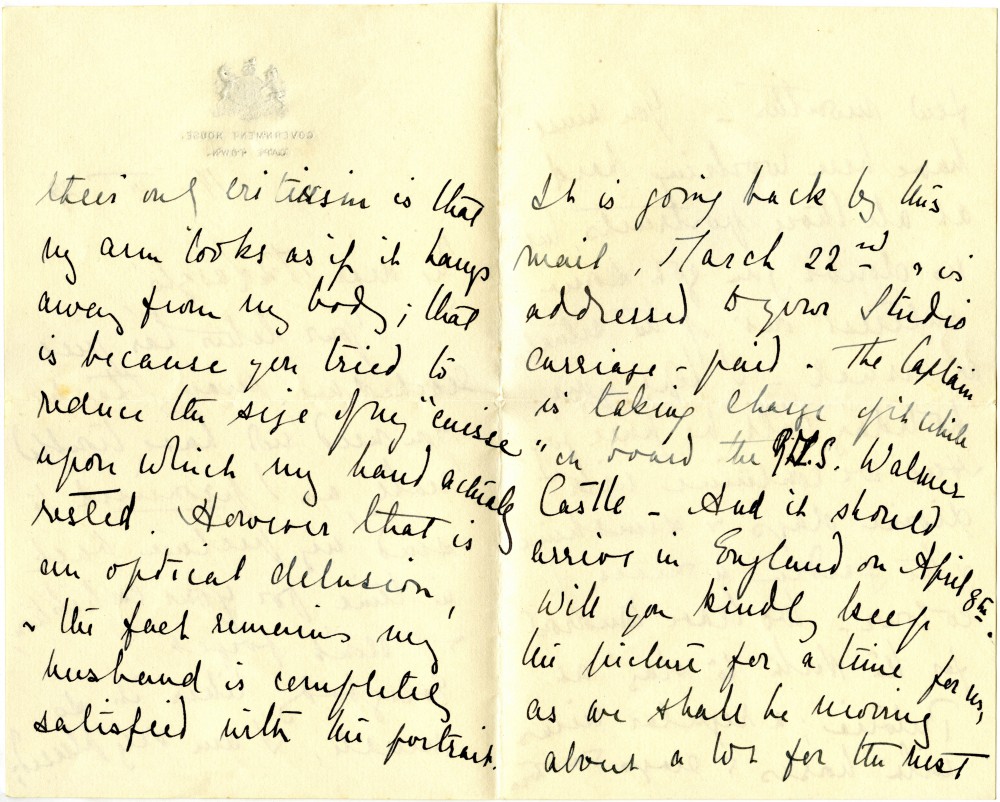 GOVERNMENT HOUSE,
CAPE TOWN.
their only criticism is that
my arm looks as if it hangs
away from my body; that
is because you tried to
reduce the size of my "cuisse"
upon which my hand actually
rested. However that is
an optical delusion,
& the fact remains my
husband is completely
satisfied with the portrait.
It is going back by this
mail, March 22nd, & is
addressed to your Studio
carriage - paid - The Captain
is taking charge of it while
on board the R.M.S. Walmer
Castle - And it should
arrive in England on April 8th.
Will you kindly keep
the picture for a time for us,
as we shall be moving
about a lot for the next